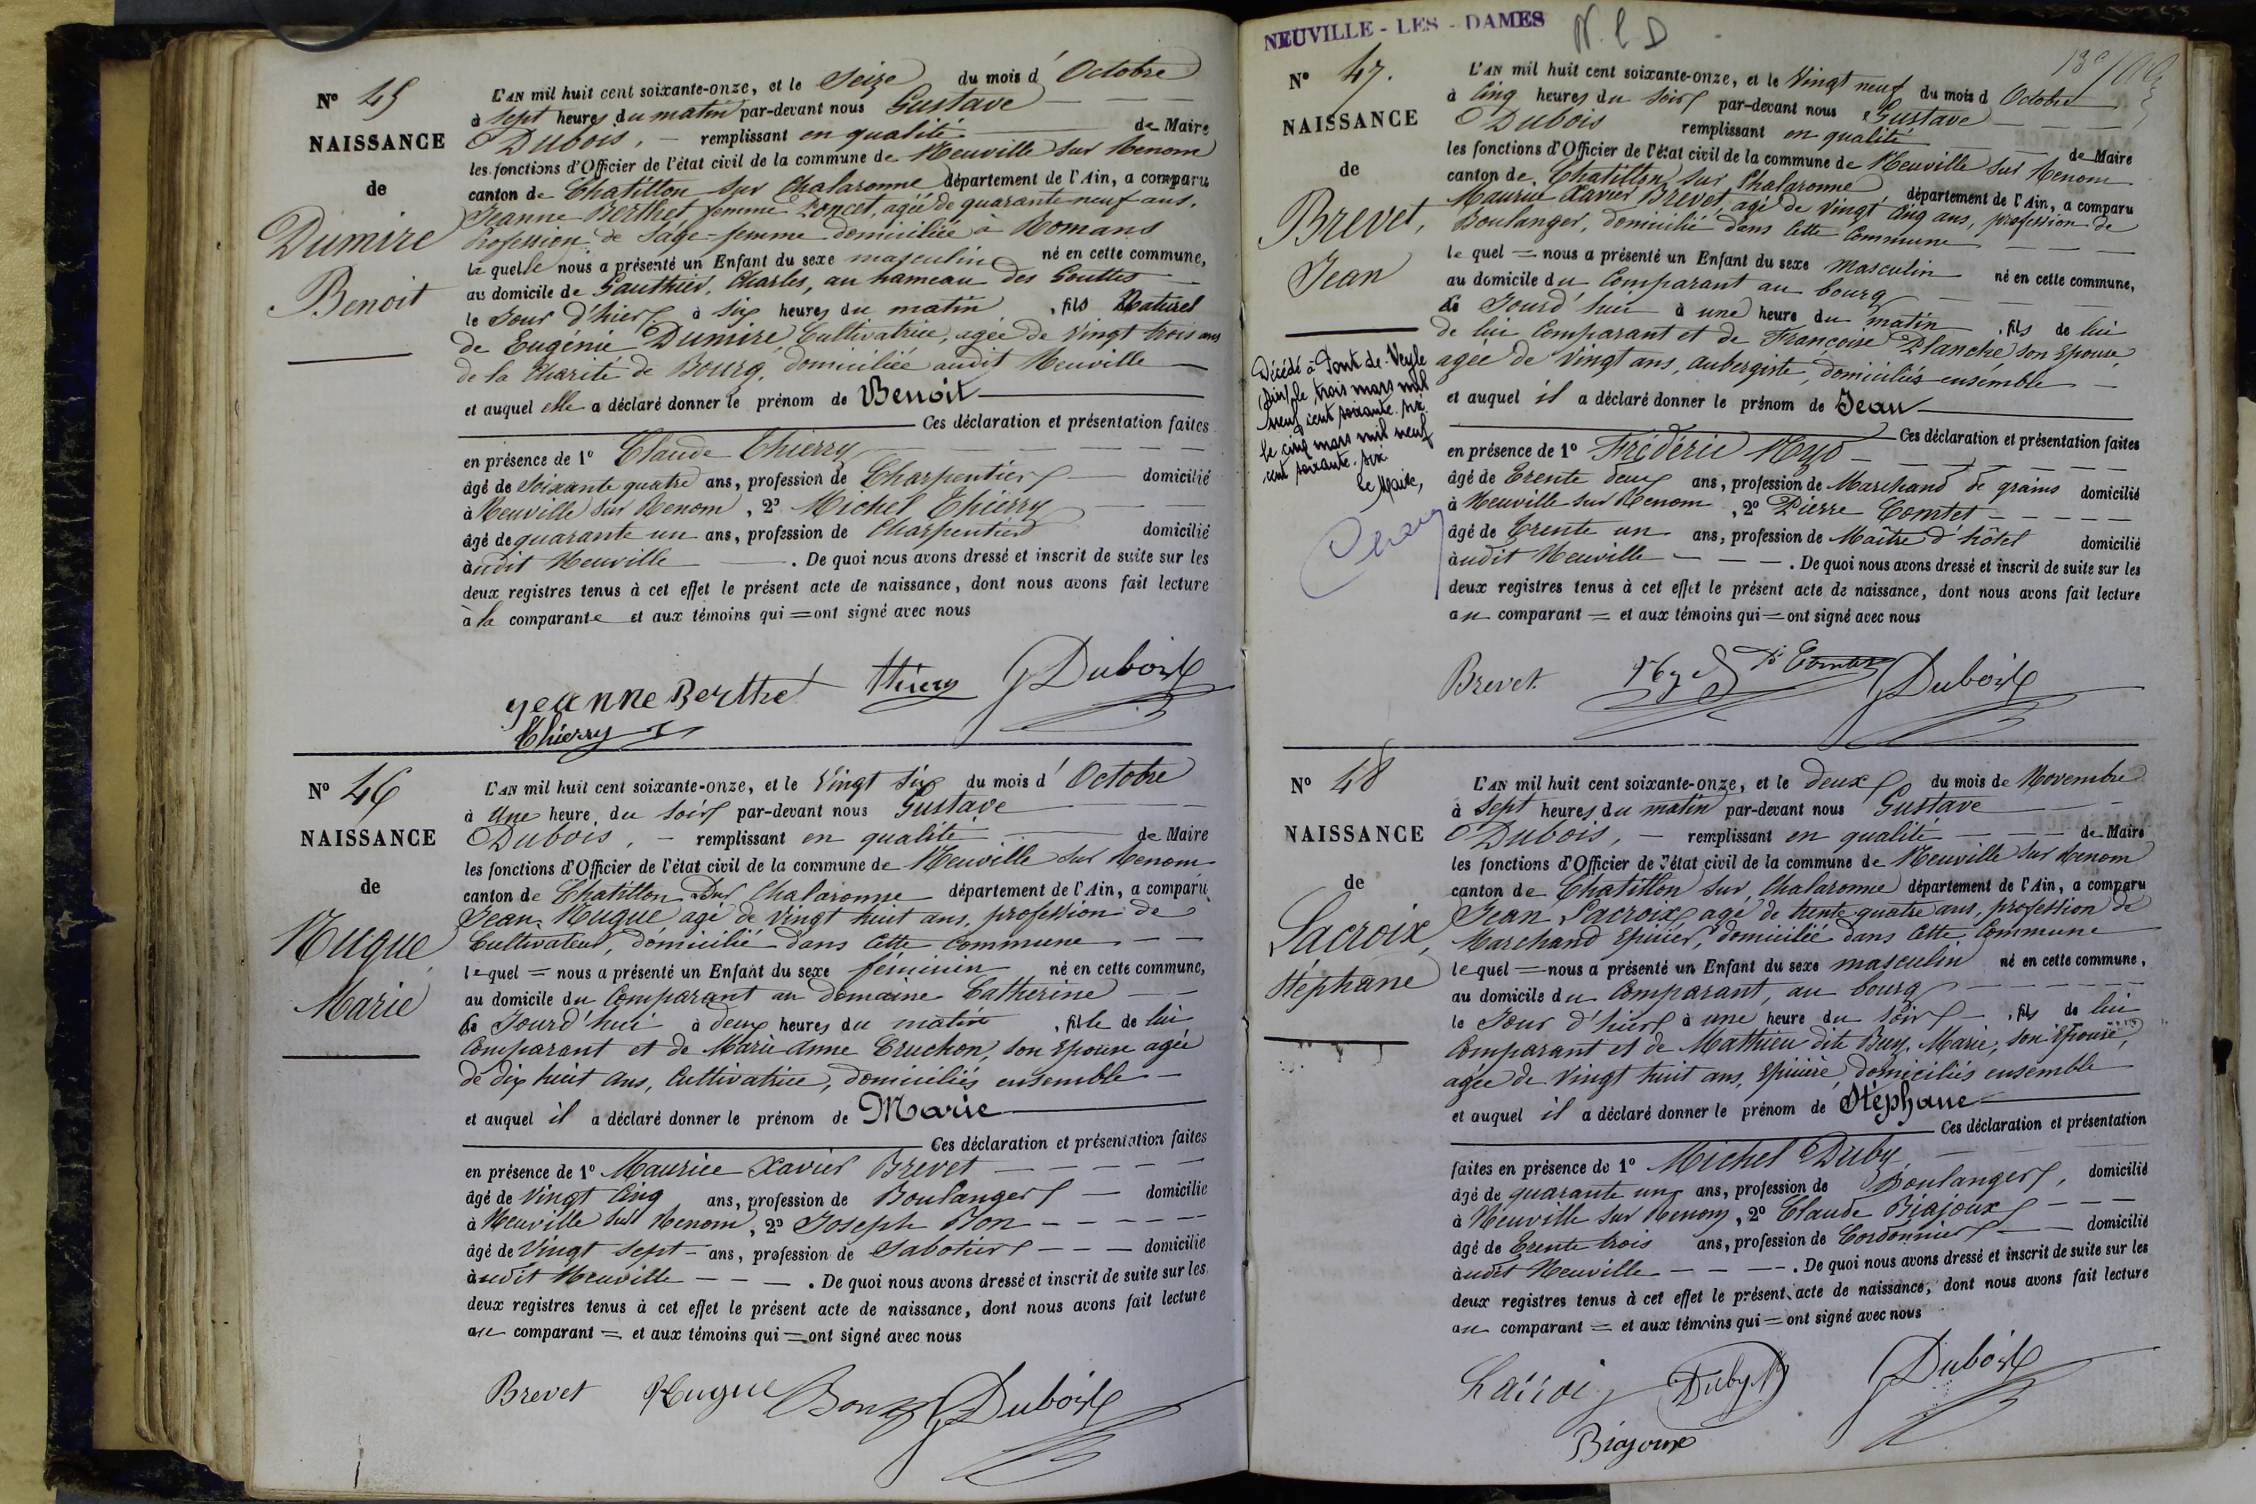 N° 45
NAISSANCE
de
Dumire
Benoit
L'AN mil huit cent soixante-onze, et le Seize du mois d'Octobre
à sept heures du matin par-devant nous Gustave
Dubois, remplissant en qualité de Maire
les fonctions d'Officier de l'état civil de la commune de Neuville sur Renom
canton de Chatillon sur Chalaronne département de l'Ain, a comparu
Jeanne Berthet femme Poncet, agée de quarante neuf ans,
Profession de Sage=femme domiciliée à Romans
la quelle nous a présenté un Enfant du sexe masculin né en cette commune,
au domicile de Gauthier, Charles, au hameau des Gouttes
le Jour d'hier à six heures du matin, fils Naturel
de Eugénie Dumire, Cultivatrice, agée de vingt trois ans
de la Charité de Bourg, domiciliée audit Neuville
et auquel elle a déclaré donner le prénom de Benoit
Ces déclaration et présentation faites
en présence de 1° Claude Thierry
âgé de soixante quatre ans, profession de Charpentier domicilié
à Neuville sur Renom, 2° Michel Thierry
âgé de quarante un ans, profession de Charpentier domicilié
audit Neuville. De quoi nous avons dressé et inscrit de suite sur les
deux registres tenus à cet effet le présent acte de naissance, dont nous avons fait lecture
à la comparante et aux témoins qui = ont signé avec nous
Jeanne Berthet Thiery G Dubois
Thierry
N° 46
NAISSANCE
de
Nugue
Marie
L'AN mil huit cent soixante-onze, et le Vingt six du mois d'Octobre
à Une heure du soir par-devant nous Gustave
Dubois, remplissant en qualité de Maire
les fonctions d'Officier de l'état civil de la commune de Neuville sur Renom
canton de Chatillon sur Chalaronne département de l'Ain, a comparu
Jean Nugue agé de vingt huit ans, profession de
Cultivateur, domicilié dans cette commune
le quel = nous a présenté un Enfant du sexe féminin né en cette commune,
au domicile du Comparant au domaine Catherine
ce Jourd'hui à deux heures du matin, fille de lui
Comparant et de Marie Anne Cruchon, son Epouse agée
de dix huit ans, Cultivatrice, domiciliés ensemble
et auquel il a déclaré donner le prénom de Marie
Ces déclaration et présentation faites
en présence de 1° Maurice Xavier Brevet
âgé de vingt cinq ans, profession de Boulanger domicilié
à Neuville sur Renom, 2° Joseph Bon
âgé de Vingt sept ans, profession de Sabotier domicilié
audit Neuville. De quoi nous avons dressé et inscrit de suite sur les
deux registres tenus à cet effet le présent acte de naissance, dont nous avons fait lecture
au comparant = et aux témoins qui = ont signé avec nous
Brevet Nugue Bon G Dubois
NEUVILLE - LES - DAMES N.L.D
N° 47.
NAISSANCE
de
Brevet,
Jean
Décédé à Pont-de-Veyle
(Ain) le trois mars mil
neuf cent soixante-six.
le cinq mars mil neuf
cent soixante-six
le Maire,
L'AN mil huit cent soixante-onze, et le Vingt neuf du mois d Octobre
à Cinq heures du soir par-devant nous Gustave
Dubois remplissant en qualité de Maire
les fonctions d'Officier de l'état civil de la commune de Neuville sur Renom
canton de Chatillon sur Chalaronne département de l'Ain, a comparu
Maurice Xavier Brevet, agé de vingt cinq ans, profession de
Boulanger, domicilié dans cette Commune
le quel = nous a présenté un Enfant du sexe Masculin né en cette commune,
au domicile du Comparant au bourg
ce Jourd'hui à une heure du matin, fils de lui
de lui Comparant et de Françoise Planche, son Epouse,
agée de Vingt ans, aubergiste, domiciliés ensemble
et auquel il a déclaré donner le prénom de Jean
Ces déclaration et présentation faites
en présence de 1° Frédéric
âgé de Trente deux ans, profession de Marchand de grains domicilié
à Neuville sur Renom, 2° Pierre Comtet
âgé de Trente un ans, profession de Maître d'hôtel domicilié
audit Neuville. De quoi nous avons dressé et inscrit de suite sur les
deux registres tenus à cet effet le présent acte de naissance, dont nous avons fait lecture
au comparant = et aux témoins qui = ont signé avec nous
Brevet G Dubois
N° 48
NAISSANCE
de
Lacroix,
Stéphane
L'AN mil huit cent soixante-onze, et le deux du mois de Novembre
à Sept heures du matin par-devant nous Gustave
Dubois, remplissant en qualité de Maire
les fonctions d'Officier de l'état civil de la commune de Neuville sur Renom
canton de Chatillon sur Chalaronne département de l'Ain, a comparu
Jean Lacroix agé de trente quatre ans, profession de
Marchand Epicier, domicilié dans cette Commune
le quel = nous a présenté un Enfant du sexe masculin né en cette commune,
au domicile du Comparant, au bourg
le Jour d'hier à une heure du soir, fils de lui
Comparant et de Mathieu dite Buy, Marie, son Epouse,
agée de vingt huit ans, Epicière, domiciliés ensemble
et auquel il a déclaré donner le prénom de Stéphane
Ces déclaration et présentation
faites en présence de 1° Michel Duby
âgé de quarante un ans, profession de Boulanger, domicilié
à Neuville sur Renom, 2° Claude Biajoux
âgé de Trente trois ans, profession de Cordonnier domicilié
audit Neuville. De quoi nous avons dressé et inscrit de suite sur les
deux registres tenus à cet effet le présent acte de naissance, dont nous avons fait lecture
au comparant = et aux témoins qui = ont signé avec nous
Lacroix Duby G Dubois
Biajoux